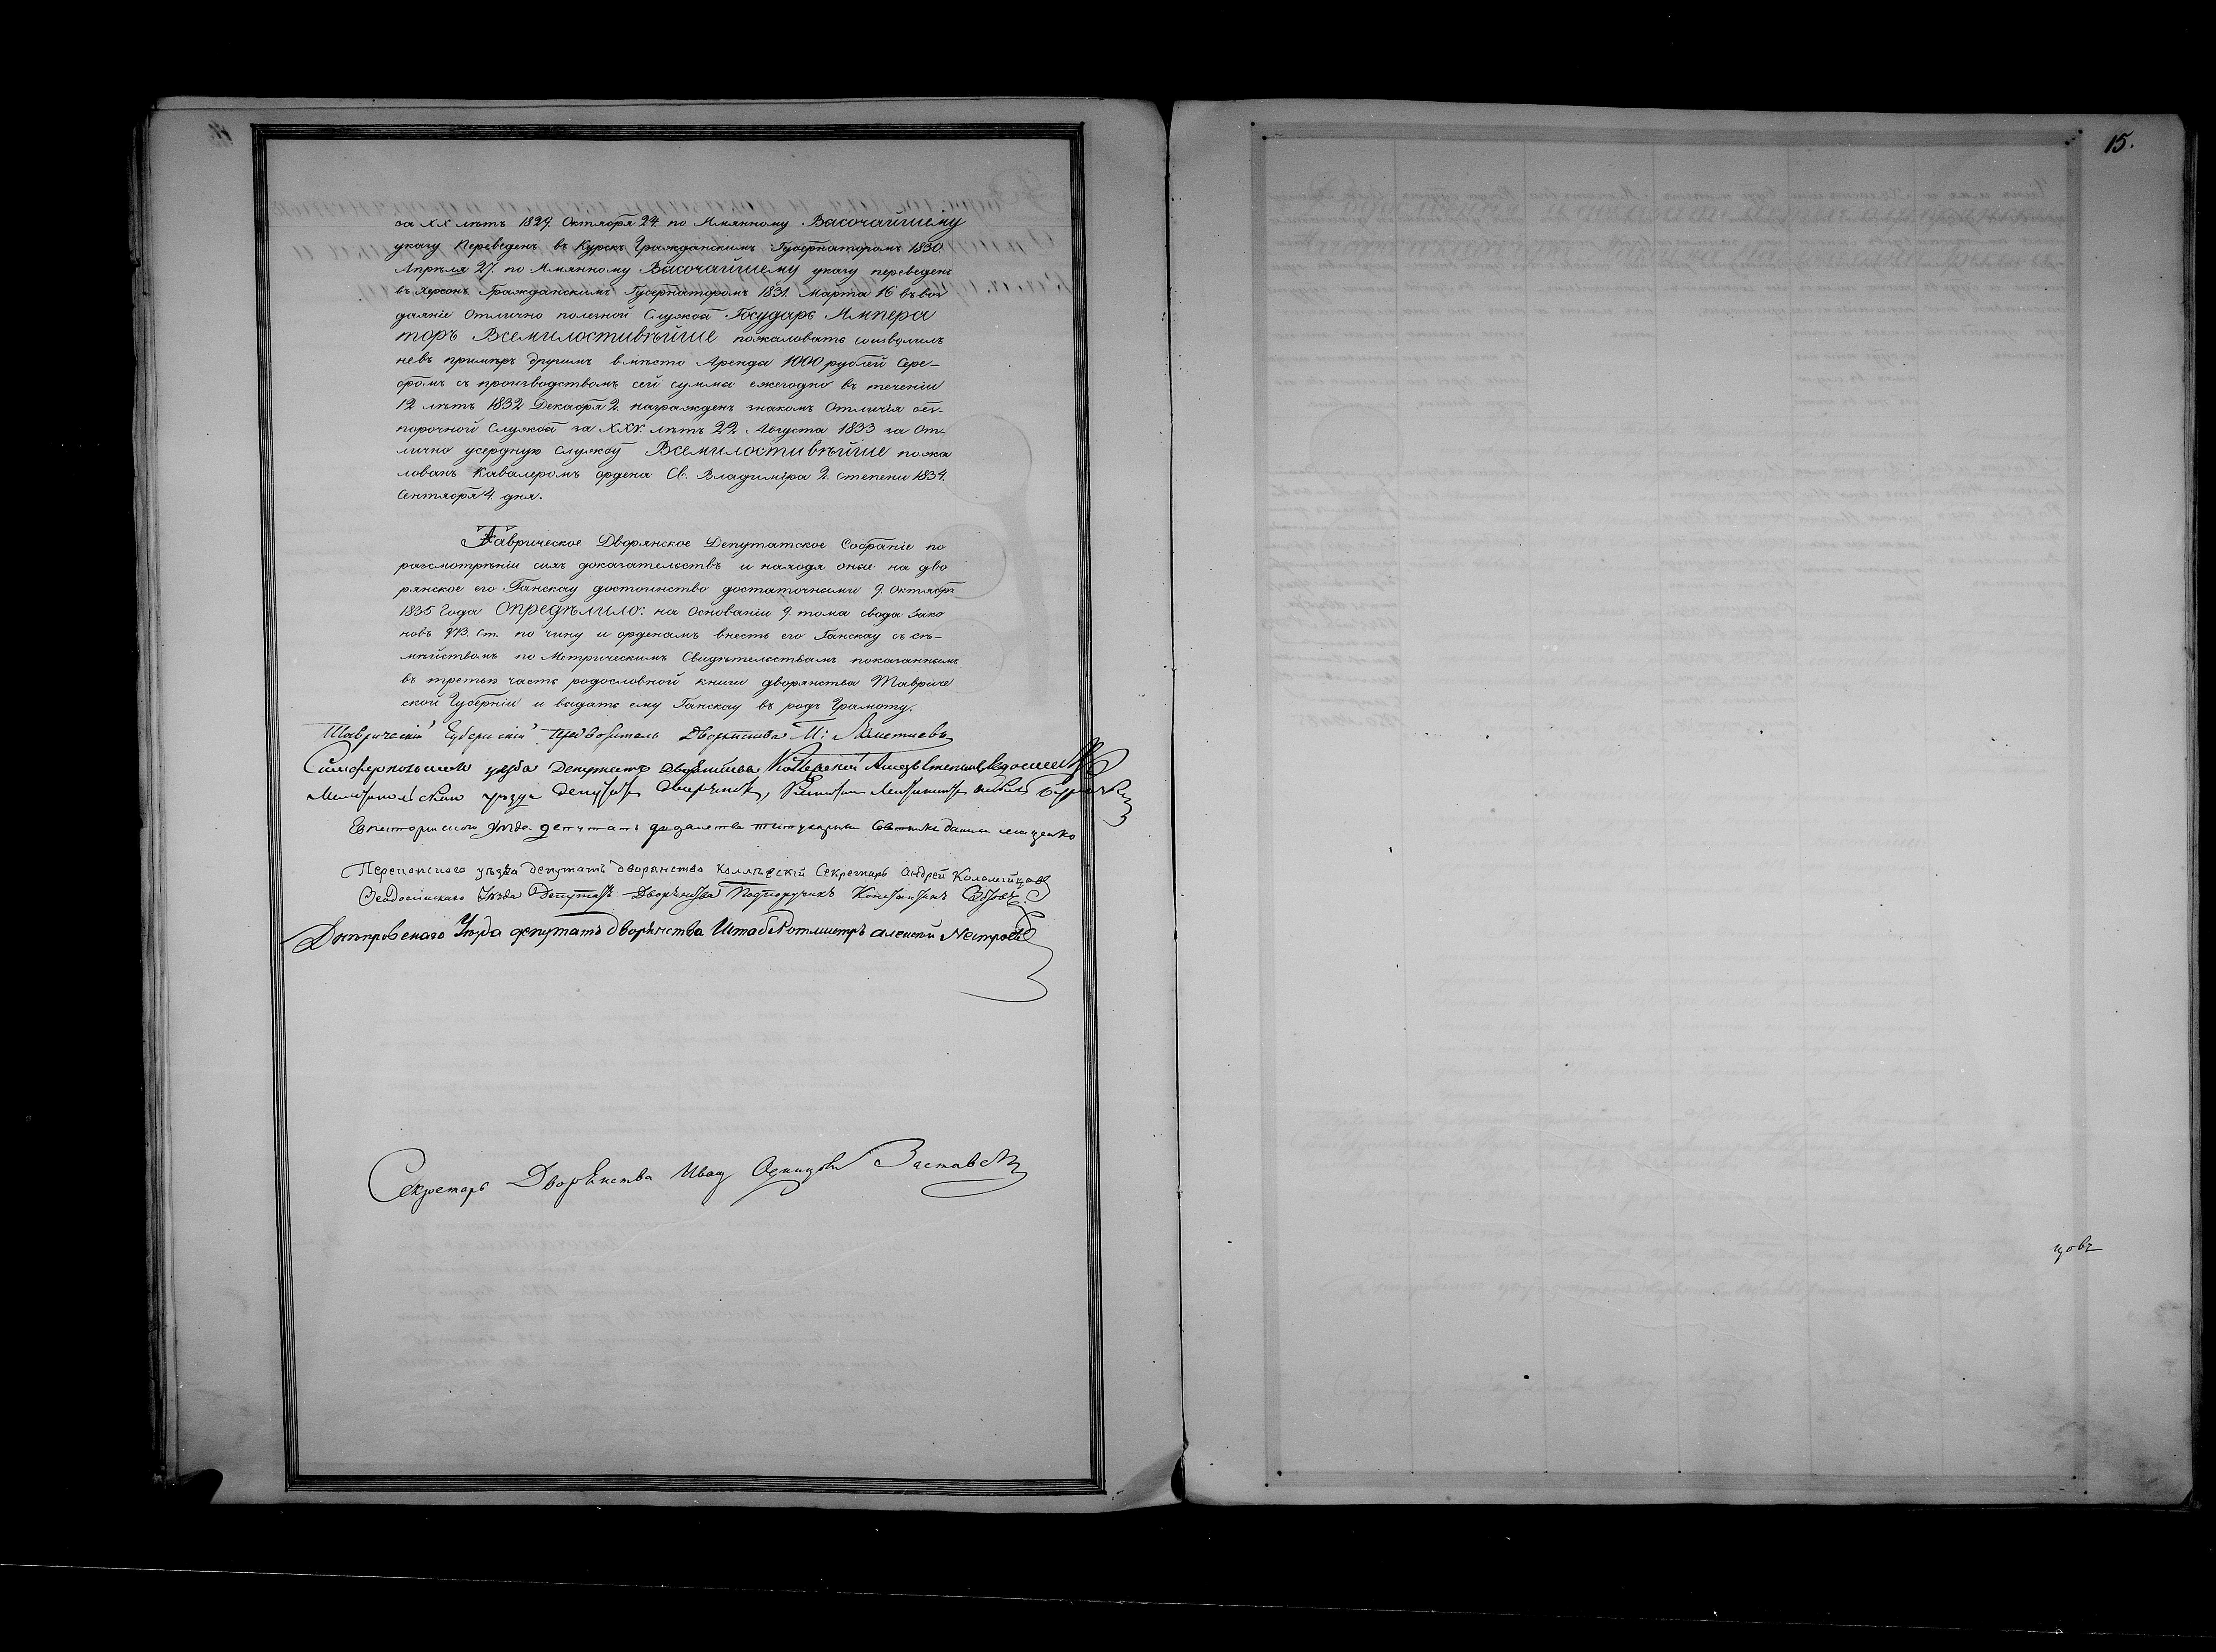 за XX лѣтъ 1829. Октября 24. по Имянному Высочайшему
указу Переведенъ въ Курскъ Гражданскимъ Губернаторомъ 1830.
Апрѣля 27. по Имянному Высочайшему указу переведенъ
въ Херсонъ Гражданскимъ Губернаторомъ 1831. Марта 16 въ воз
даяніе Отлично полезной Службы Государь Импера
торъ Всемилостивѣйше пожаловать соизволилъ
невъ примѣръ другимъ вмѣсто Аренды 1000 рублей Сере-
бромъ съ производствомъ сей суммы ежегодно въ теченіи
12 лѣтъ 1832 Декабря 2. награжденъ знакомъ Отличія без-
порочной Службы за XXV. лѣтъ 22 Августа 1833 за От-
лично усердную Службу Всемилостивѣйше пожа
лованъ Кавалеромъ ордена Св. Владиміра 2. степени 1834.
Сентября 4. дня.
Таврическое Дворянское Депутатское Собраніе по
разсмотрѣніи сихъ доказательствъ и находя оные на дво
рянское его Ганскау достоинство достаточными 9. Октября
1835 Года Опредѣлило: на Основаніи 9. тома свода Зако
новъ ст. по чину и орденамъ внесть его Ганскау съ се-
мѣйствомъ по Метрическимъ Свидѣтельствамъ показаннымъ
въ третью часть родословной книги дворянства Тавриче
ской Губерніи и выдать ему Ганскау въ родъ Грамоту.
Таврическій Губернскій Предводитель Дворянства
Симферопольскаго уѣзда Депутатъ Дворянства
Мелитопольскаго уѣзда Депутатъ Дворянства,
Евпаторійскаго уѣзда депутатъ дворянства титулярный Совѣтникъ
Перекопскаго уѣзда депутатъ дворянства Коллежскій Секретарь Андрей Коломійцовъ
Ѳеодосійскаго Уѣзда Депутатъ Дворянства Подпоручикъ Константинъ
Днѣпровскаго Уѣзда депутатъ дворянства Штабъ Ротмистръ Алексѣй
Секретарь Дворянства Иванъ
15.
цовъ